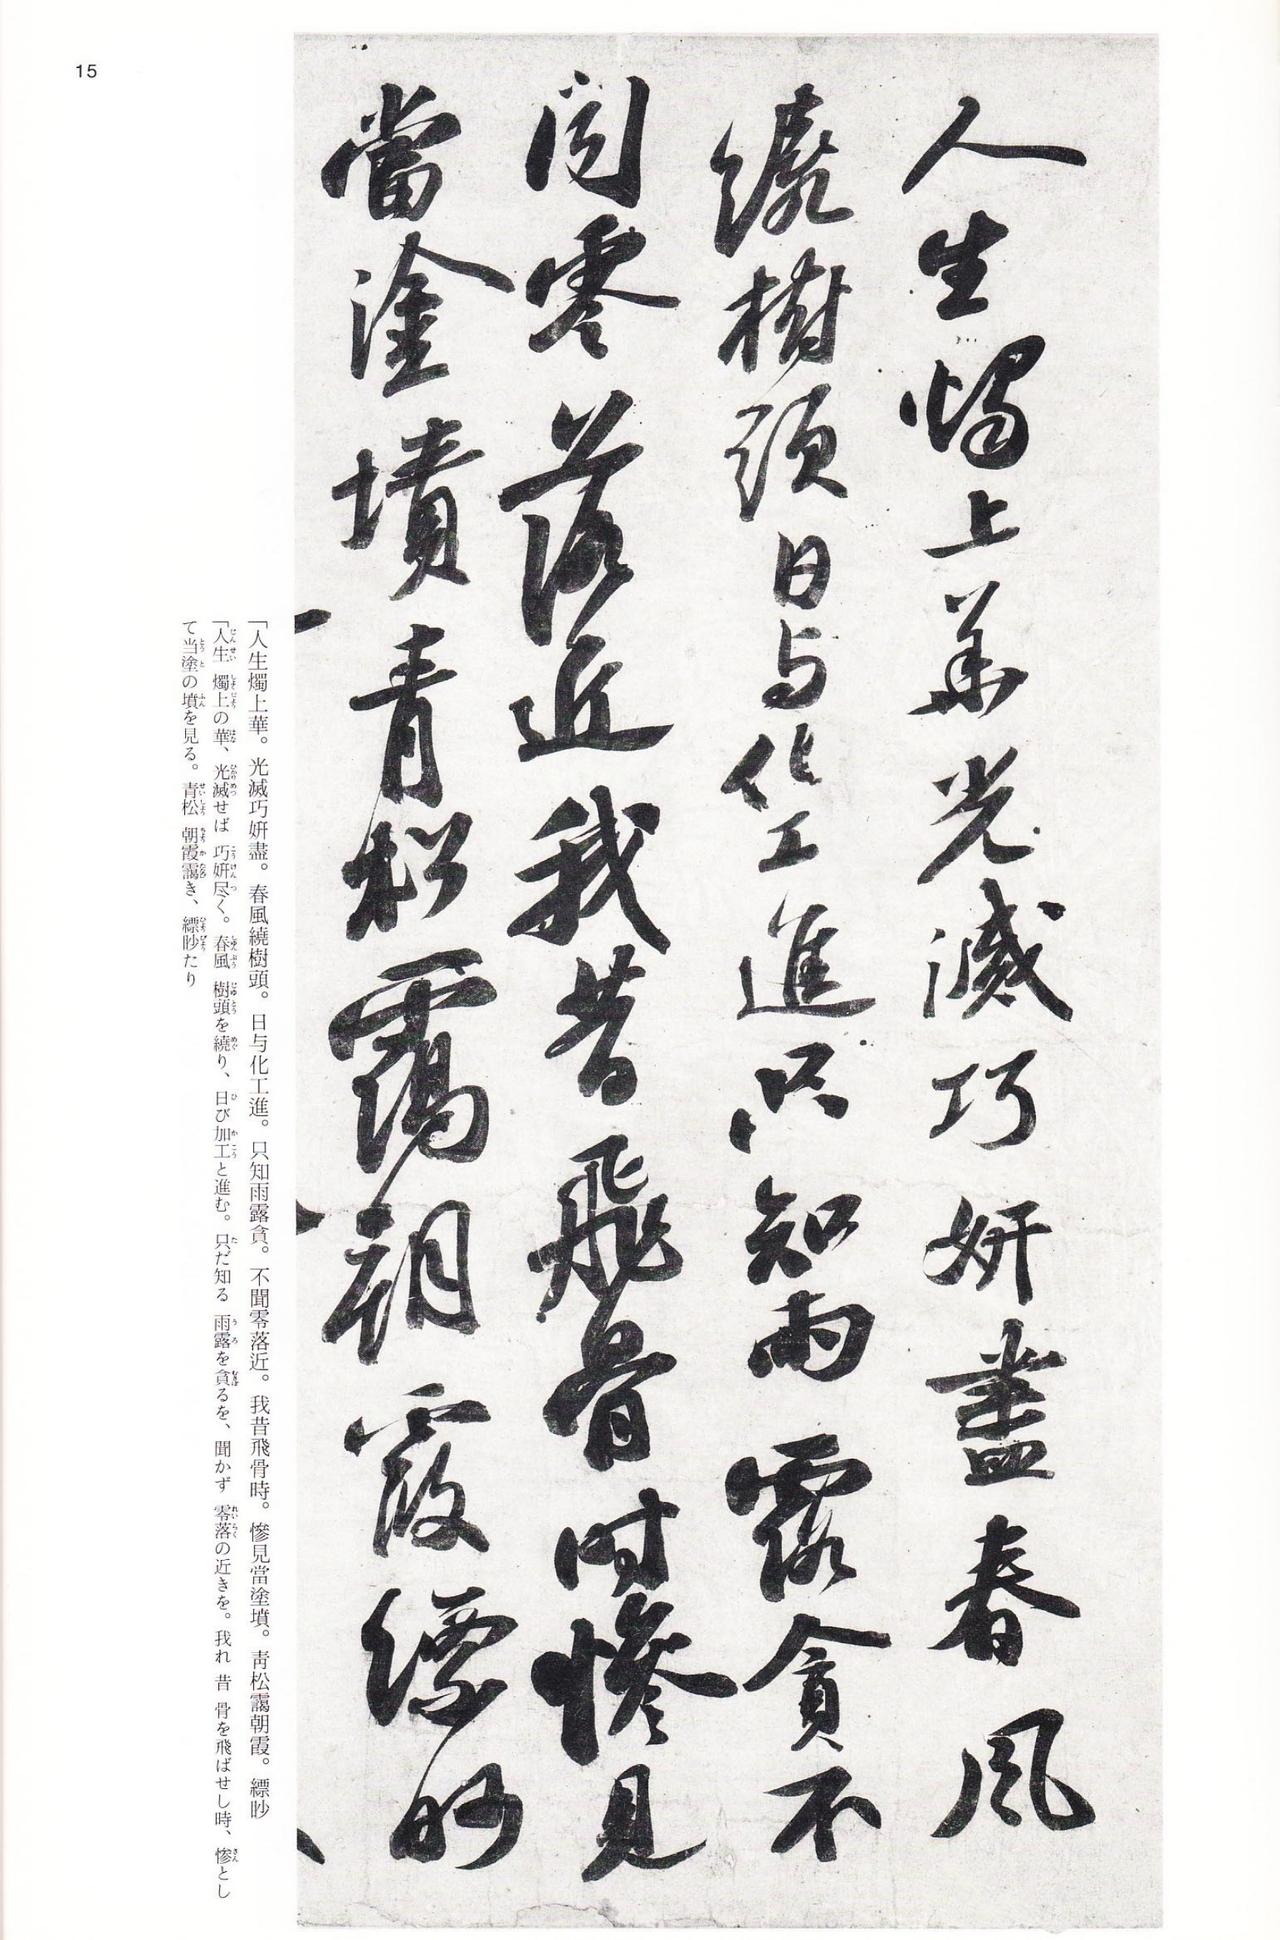 15
人生燭上華光滅巧妍盡春風
繞樹頭日与化工進只知雨露貪不
聞零落近我昔飛骨時慘見
當塗墳青松靄朝霞縹眇
「人生燭上華。光滅巧妍盡。春風繞樹頭。日与化工進。只知雨露貪。不聞零落近。我昔飛骨時。慘見當塗墳。靑松靄朝霞。縹眇
「人生 燭上の華、光滅せば 巧妍尽く。春風 樹頭を繞り、日び加工と進む。只だ知る 雨露を貪るを、聞かず 零落の近きを。我れ 昔 骨を飛ばせし時、惨とし
て当塗の墳を見る。青松 朝霞靄き、縹眇たり